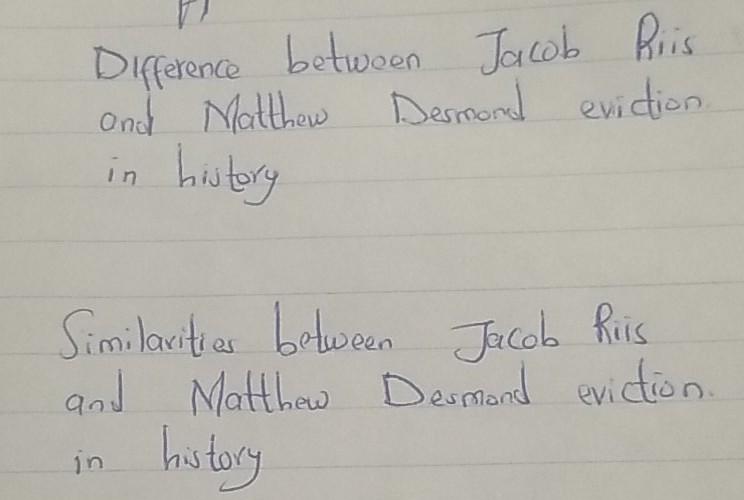 Difference between Jacob Riis
and Matthew Desmond eviction
in history
Similarities between Jacob Riis
and Matthew Desmond eviction.
in history